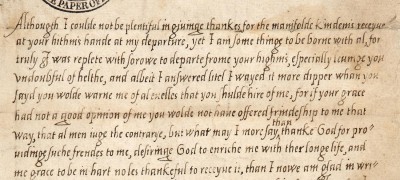 PAPER OFF
Although I coulde not be plentiful in giuinge thankes for the manifolde kindenis receyued
at your hithnis hande at my departure, yet I am some thinge to be borne with al, for
truly I was replete with sorowe to departe frome your highnis, especially
vndoubful of helthe, and albeit I answered litel I wayed it more dipper whan you
sayd you wolde warne me of al euelles that you shulde hire of me, for if your grace
had not a good opinion of me you wolde not haue offered frindeship to me that
way, that al men iuge the contrarye, but what may I more say than thanke God for pro-
uidinge suche frendes to me, desiringe God to enriche me with ther longe life, and
me grace to be in hart no les thankeful to receyue it, than I nowe am glad in wri-